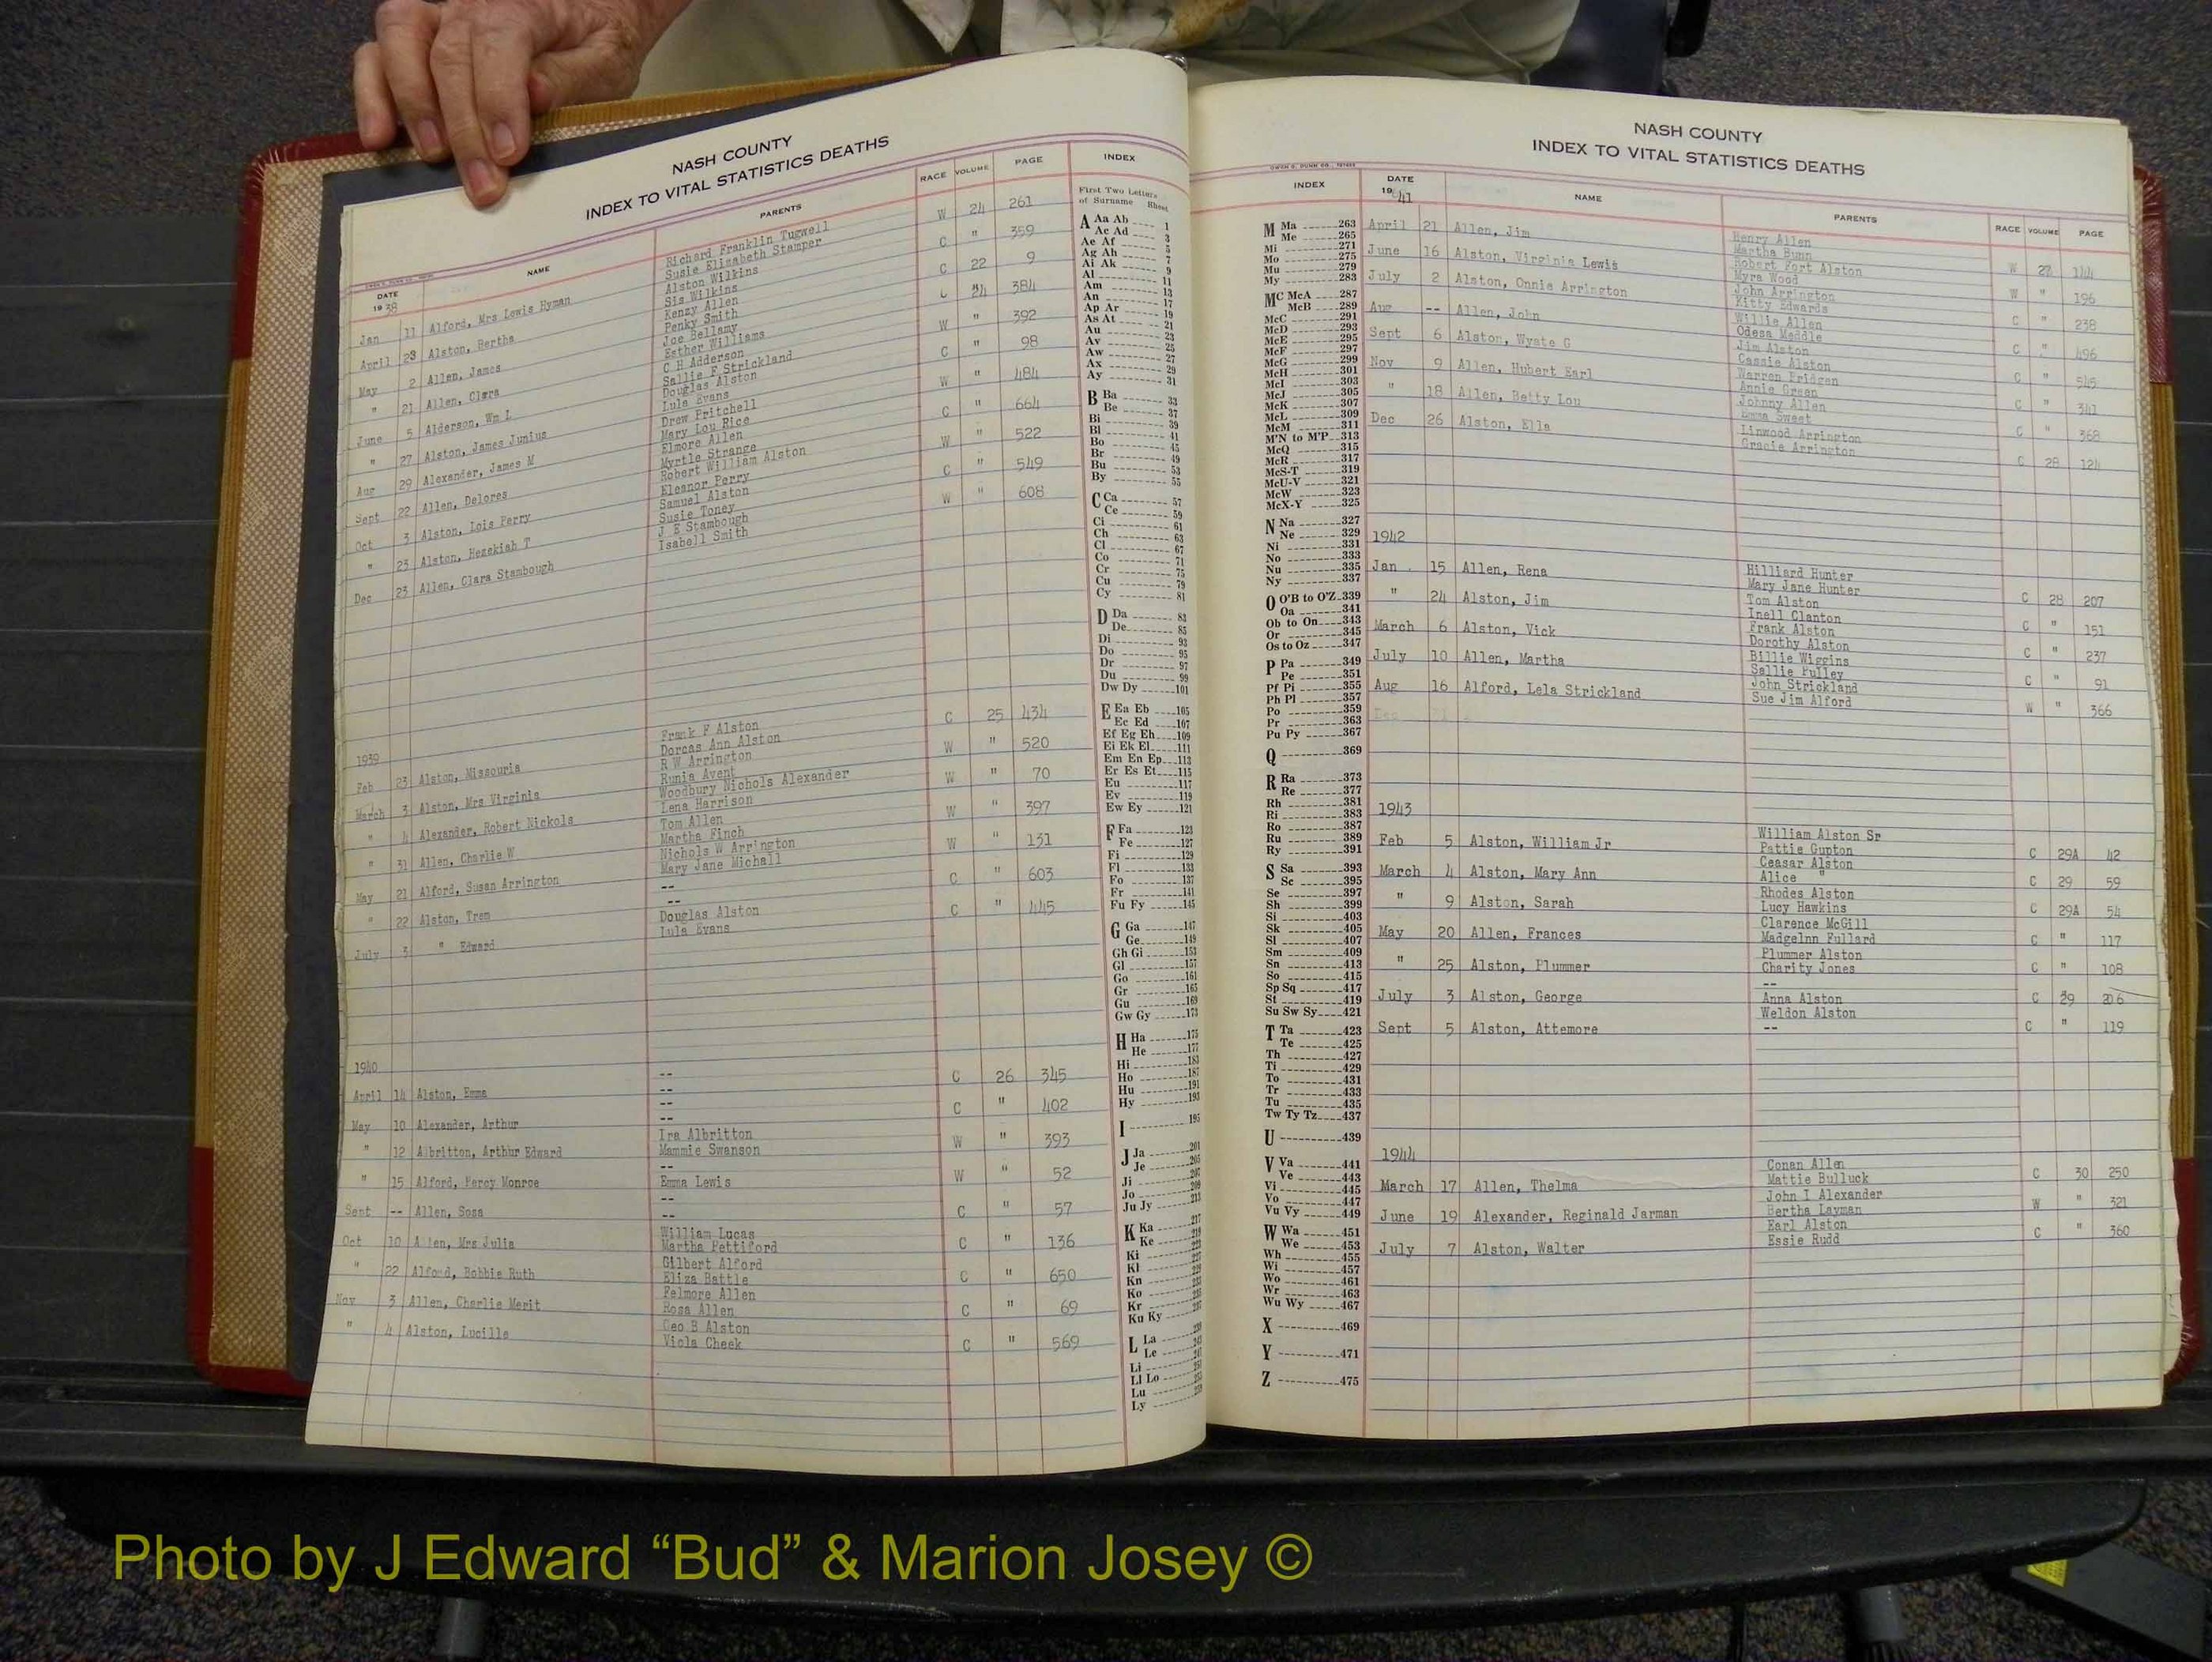 NASH COUNTY
INDEX TO VITAL STATISTICS DEATHS
DATE NAME PARENTS RACE VOLUME PAGE
1938
Jan 11 Alford, Mrs Lewis Hyman Richard Franklin Tugwell W 24 261
Susie Elizabeth Stamper
April 23 Alston, Bertha Alston Wilkins C " 359
Sis Wilkins
May 2 Allen, James Kenzy Allen C 22 9
Penky Smith
" 21 Allen, Clara Joe Bellamy C 24 384
Esther Williams
June 5 Alderson, Wm L C H Adderson W " 392
Sallie F Strickland
" 27 Alston, James Junius Douglas Alston C " 98
Lula Evans
Aug 29 Alexander, James M Drew Pritchell W " 484
Mary Lou Rice
Sept 22 Allen, Delores Elmore Allen C " 664
Myrtle Strange
Oct 3 Alston, Lois Perry Robert William Alston W " 522
Eleanor Perry
" 23 Alston, Hezekiah T Samuel Alston C " 549
Susie Toney
Dec 23 Allen, Clara Stambough J E Stambough W " 608
Isabell Smith
1939
Feb 23 Alston, Missouria Frank F Alston C 25 434
Dorcas Ann Alston
March 3 Alston, Mrs Virginia R W Arrington W " 520
Runia Avent
" 4 Alexander, Robert Nickols Woodbury Nichols Alexander W " 70
Lena Harrison
" 31 Allen, Charlie W Tom Allen W " 397
Martha Finch
May 21 Alford, Susan Arrington Nichols W Arrington W " 131
Mary Jane Michall
" 22 Alston, Trem -- C " 603
--
July 3 " Edward Douglas Alston C " 445
Lula Evans
1940
April 14 Alston, Emma -- C 26 345
--
May 10 Alexander, Arthur -- C " 402
--
" 12 Albritton, Arthur Edward Ira Albritton W " 393
Mammie Swanson
" 15 Alford, Percy Monroe -- W " 52
Emma Lewis
Sept -- Allen, Sosa -- C " 57
--
Oct 10 Allen, Mrs Julia William Lucas C " 136
Martha Pettiford
" 22 Alford, Bobbie Ruth Gilbert Alford C " 650
Eliza Battle
Nov 3 Allen, Charlie Merit Felmore Allen C " 69
Rosa Allen
" 4 Alston, Lucille Geo B Alston C " 569
Viola Cheek
INDEX
First Two Letters
of Surname Sheet
A Aa Ab 1
Ac Ad 3
Ae Af 5
Ag Ah 7
Ai Ak 9
Al 11
Am 13
An 17
Ap Ar 19
As At 21
Au 23
Av 25
Aw 27
Ax 29
Ay 31
B Ba 33
Be 37
Bi 39
Bl 41
Bo 45
Br 49
Bu 53
By 55
C Ca 57
Ce 59
Ci 61
Ch 63
Cl 67
Co 71
Cr 75
Cu 79
Cy 81
D Da 83
De 85
Di 93
Do 95
Dr 97
Du 99
Dw Dy 101
E Ea Eb 105
Ec Ed 107
Ef Eg Eh 109
Ei Ek El 111
Em En Ep 113
Er Es Et 115
Eu 117
Ev 119
Ew Ey 121
F Fa 123
Fe 127
Fi 129
Fl 133
Fo 137
Fr 141
Fu Fy 145
G Ga 147
Ge 149
Gh Gi 153
Gl 157
Go 161
Gr 165
Gu 169
Gw Gy 173
H Ha 175
He 177
Hi 183
Ho 187
Hu 191
Hy 193
I 195
J Ja 201
Je 205
Ji 207
Jo 209
Ju Jy 213
K Ka 217
Ke 219
Ki
Kl
Kn
Ko
Kr
Ku Ky
L La
Le
Li
Ll Lo
Lu
Ly
NASH COUNTY
INDEX TO VITAL STATISTICS DEATHS
INDEX
M Ma 263
Me 265
Mi 271
Mo 275
Mu 279
My 283
Mc McA 287
McB 289
McC 291
McD 293
McE 295
McF 297
McG 299
McH 301
McI 303
McJ 305
McK 307
McL 309
McM 311
M'N to M'P 313
McQ 315
McR 317
McS-T 319
McU-V 321
McW 323
McX-Y 325
N Na 327
Ne 329
Ni 331
No 333
Nu 335
Ny 337
O O'B to O'Z 339
Oa 341
Ob to On 343
Or 345
Os to Oz 347
P Pa 349
Pe 351
Pf Pi 355
Ph Pl 357
Po 359
Pr 363
Pu Py 367
Q 369
R Ra 373
Re 377
Rh 381
Ri 383
Ro 387
Ru 389
Ry 391
S Sa 393
Sc 395
Se 397
Sh 399
Si 403
Sk 405
Sl 407
Sm 409
Sn 413
So 415
Sp Sq 417
St 419
Su Sw Sy 421
T Ta 423
Te 425
Th 427
Ti 429
To 431
Tr 433
Tu 435
Tw Ty Tz 437
U 439
V Va 441
Ve 443
Vi 445
Vo 447
Vu Vy 449
W Wa 451
We 453
Wh 455
Wi 457
Wo 461
Wr 463
Wu Wy 467
X 469
Y 471
Z 475
DATE NAME PARENTS RACE VOLUME PAGE
1941
April 21 Allen, Jim Henry Allen W 27 144
Martha Bunn
June 16 Alston, Virginia Lewis Robert Fort Alston W " 196
Myra Wood
July 2 Alston, Onnie Arrington John Arrington C " 238
Kitty Edwards
Aug -- Allen, John Willie Allen C " 496
Odesa Meddle
Sept 6 Alston, Wyate G Jim Alston C " 545
Cassie Alston
Nov 9 Allen, Hubert Earl Warren Bridgen C " 341
Annie Green
" 18 Allen, Betty Lou Johnny Allen C " 368
Emma Sweet
Dec 26 Alston, Ella Linwood Arrington C 28 124
Gracie Arrington
1942
Jan 15 Allen, Rena Hilliard Hunter C 28 207
Mary Jane Hunter
" 24 Alston, Jim Tom Alston C " 151
Inell Clanton
March 6 Alston, Vick Frank Alston C " 237
Dorothy Alston
July 10 Allen, Martha Billie Wiggins C " 91
Sallie Pulley
Aug 16 Alford, Lela Strickland John Strickland W " 366
Sue Jim Alford
1943
Feb 5 Alston, William Jr William Alston Sr C 29A 42
Pattie Gupton
March 4 Alston, Mary Ann Ceasar Alston C 29 59
Alice "
" 9 Alston, Sarah Rhodes Alston C 29A 54
Lucy Hawkins
May 20 Allen, Frances Clarence McGill C " 117
Madgelnn Fullard
" 25 Alston, Plummer Plummer Alston C " 108
Charity Jones
July 3 Alston, George -- C 29 206
Anna Alston
Sept 5 Alston, Attemore Weldon Alston C " 119
--
1944
March 17 Allen, Thelma Conan Allen C 30 250
Mattie Bulluck
June 19 Alexander, Reginald Jarman John I Alexander W " 321
Bertha Layman
July 7 Alston, Walter Earl Alston C " 360
Essie Rudd
Photo by J Edward “Bud” & Marion Josey ©